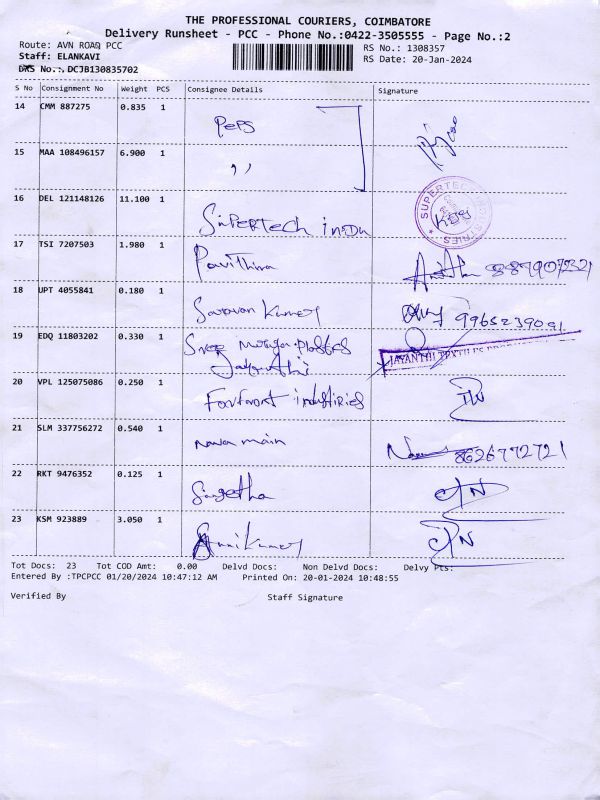 THE PROFESSIONAL COURIERS, COIMBATORE
Delivery Runsheet - PCC - Phone No.:0422-3505555 - Page No.:2
Route: AVN ROAD PCC
RS No.: 1308357
Staff: ELANKAVI
RS Date: 20-Jan-2024
DRS No.:.DCJB130835702
S No Consignment No Weight PCS Consignee Details Signature
14 CMM 887275 0.835 1 PePS
15 MAA 108496157 6.900 1 ,,
16 DEL 121148126 11.100 1 SUPERTech
SUPERTECH INDUSTRIES
17 TSI 7207503 1.980 1 Pavithira
18 UPT 4055841 0.180 1 Saravan Kumar 9965239091
19 EDQ 11803202 0.330 1
JAYANTHI TEXTILES
20 VPL 125075086 0.250 1 industries
21 SLM 337756272 0.540 1 main 8626772721
22 RKT 9476352 0.125 1 Sangetha
23 KSM 923889 3.050 1
Tot Docs: 23 Tot COD Amt: 0.00 Delvd Docs: Non Delvd Docs: Delvy Pts:
Entered By :TPCPCC 01/20/2024 10:47:12 AM Printed On: 20-01-2024 10:48:55
Verified By Staff Signature